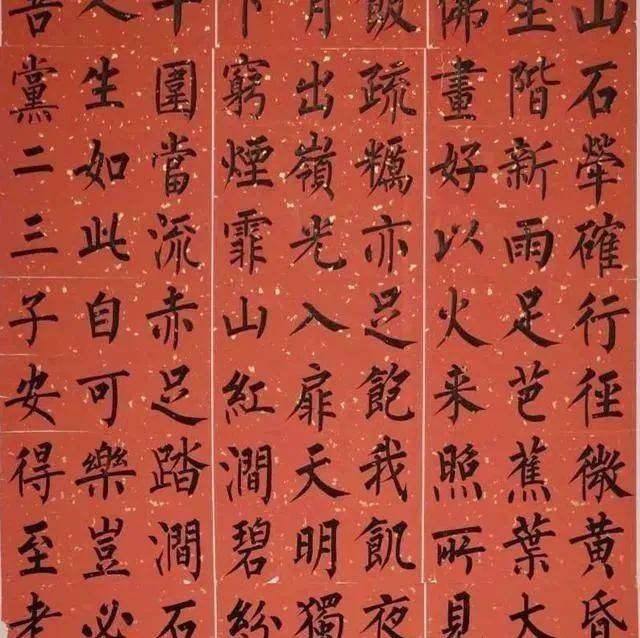 山石犖確行徑微黃昏
坐階新雨足芭蕉葉大
佛畫好以火来照所見
飯疏糲亦足飽我飢夜
月出嶺光入扉天明獨
下窮煙霏山紅澗碧紛
十圍當流赤足踏澗石
人生如此自可樂豈必
吾黨二三子安得至老